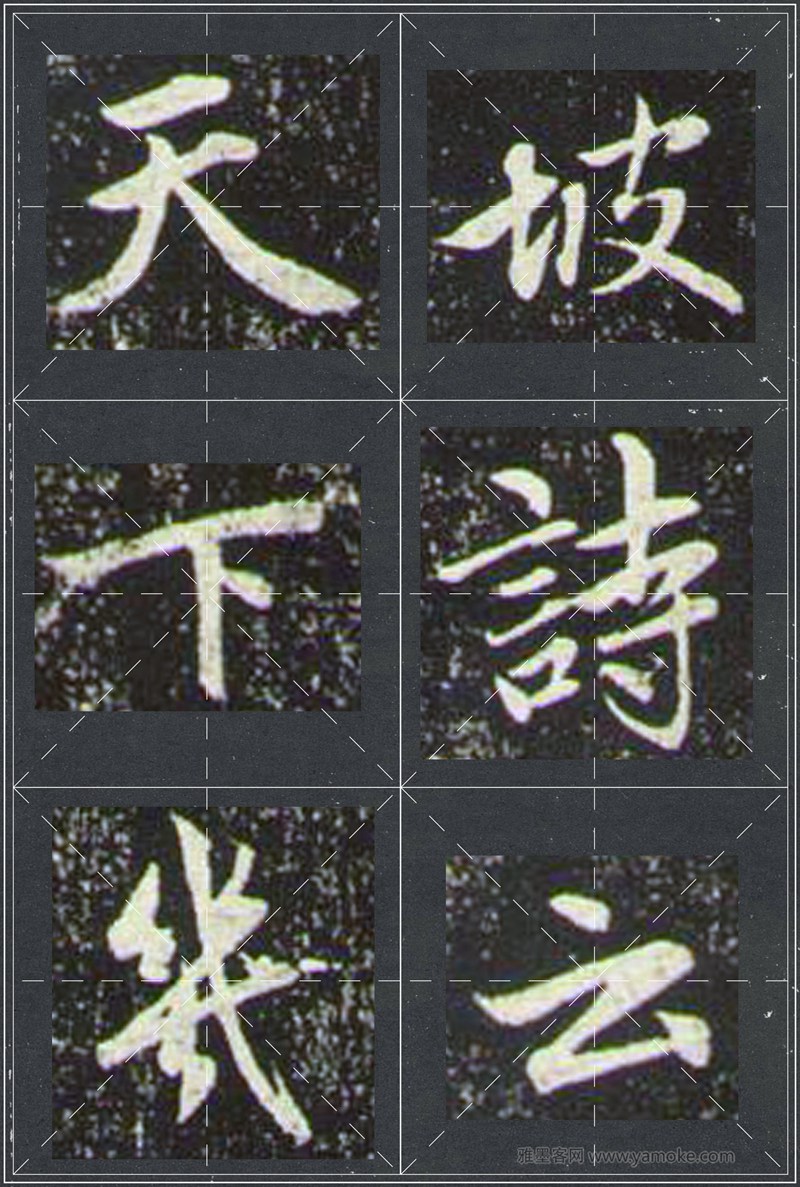 坡詩云
天下幾
雅墨客网 www.yamoke.com